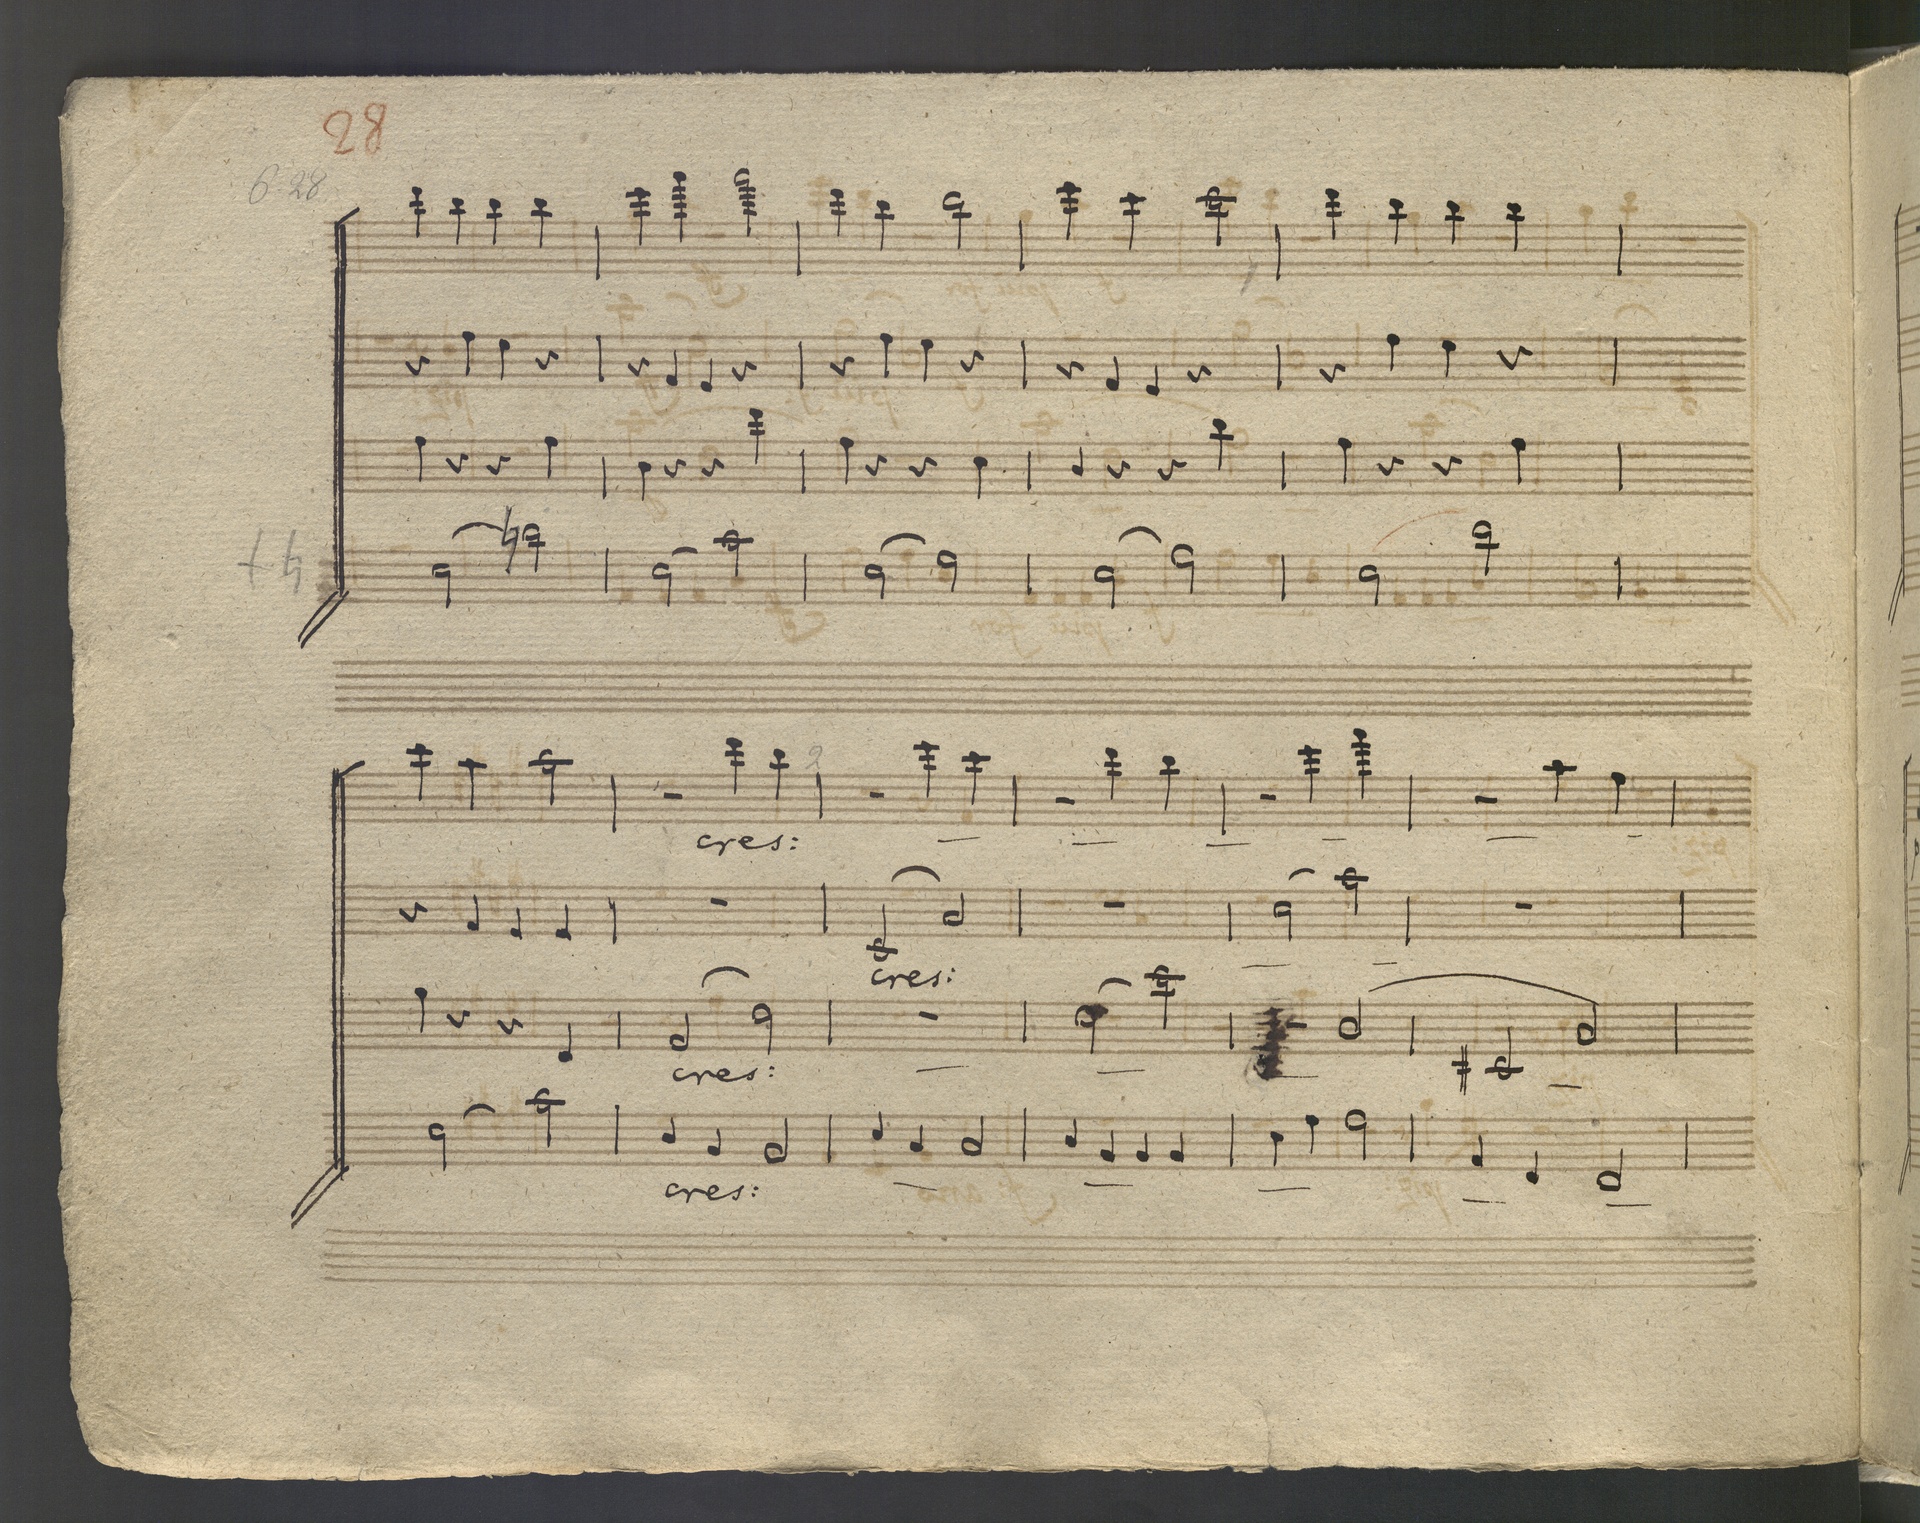 28
6 28
cres:
cres:
cres:
cres: